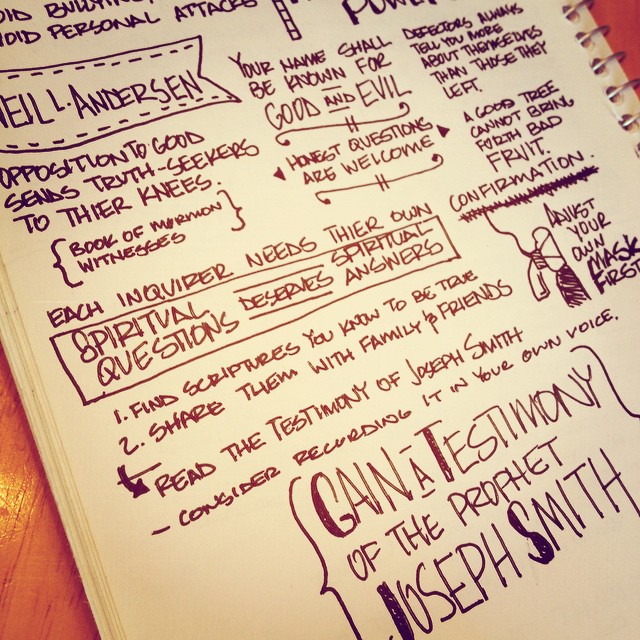 OID BULLYING
VOID PERSONAL ATTACKS
POWER
EIL L. ANDERSEN
OPPOSITION TO GOOD
SENDS TRUTH-SEEKERS
TO THIER KNEES.
{BOOK OF MORMON
WITNESSES}
YOUR NAME SHALL
BE KNOWN FOR
GOOD AND EVIL
HONEST QUESTIONS
ARE WELCOME
DEFECTORS ALWAYS
TELL YOU MORE
ABOUT THEMSELVES
THAN THOSE THEY
LEFT.
A GOOD TREE
CANNOT BRING
FORTH BAD
FRUIT.
EACH INQUIRER NEEDS THIER OWN
CONFIRMATION.
ADJUST
YOUR
OWN
MASK
FIRST
SPIRITUAL
QUESTIONS DESERVES SPIRITUAL
ANSWERS
1. FIND SCRIPTURES YOU KNOW TO BE TRUE
2. SHARE THEM WITH FAMILY & FRIENDS
READ THE TESTIMONY OF JOSEPH SMITH
- CONSIDER RECORDING IT IN YOUR OWN VOICE.
{GAIN A TESTIMONY
OF THE PROPHET
JOSEPH SMITH